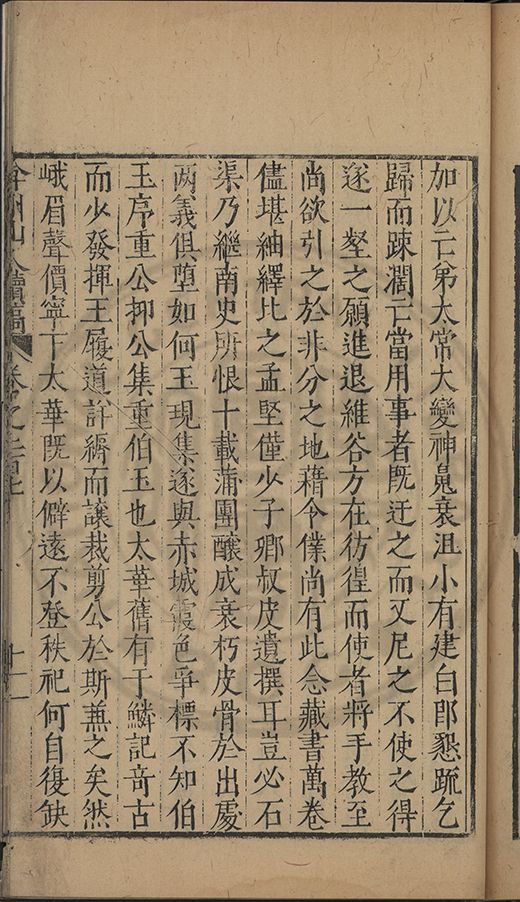 加以亡弟太常大變神鬼衰沮小有建白即懇疏乞
歸而踈濶亡當用事者既迂之而又尼之不使之得
遂一壑之願進退維谷方在彷徨而使者將手教至
尚欲引之於非分之地藉令僕尚有此念藏書萬卷
儘堪紬繹比之孟堅僅少子卿叔皮遺撰耳豈必石
渠乃繼南史所恨十載蒲團釀成衰朽皮骨於出處
两義俱墮如何玉現集遂與赤城霞色爭標不知伯
玉序重公抑公集重伯玉也太華舊有于鱗記竒古
而少發揮王履道許綉而讓裁剪公於斯蕪之矣然
峨眉聲價寧下太華既以僻遠不登秩祀何自復缺
弇州山人續稿 卷之二百七 十一